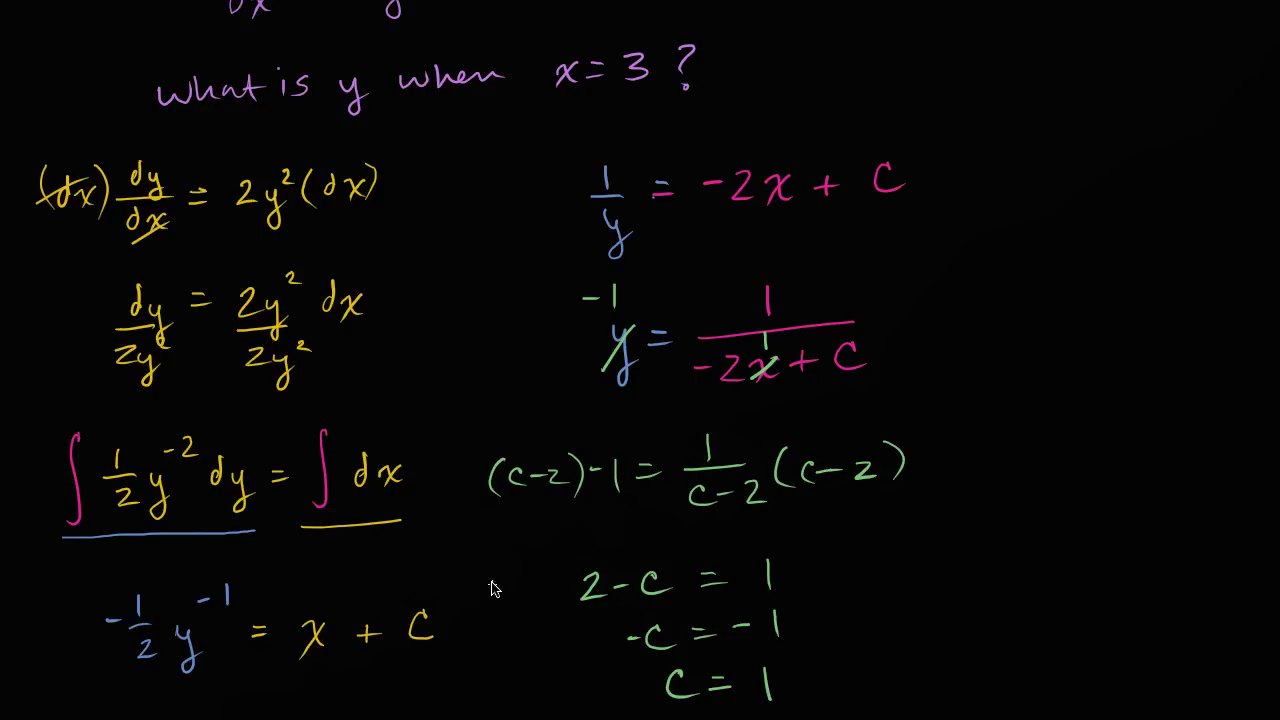 dx y
what is y when x = 3 ?
(dx) dy/dx = 2y² (dx)
dy/2y² = 2y²/2y² dx
∫ 1/2 y⁻² dy = ∫ dx
-1/2 y⁻¹ = x + C
1/y = -2x + C
-1 y = 1/(-2x + C) 1
(c-2) -1 = 1/(c-2) (c-2)
2 - c = 1
-c = -1
c = 1